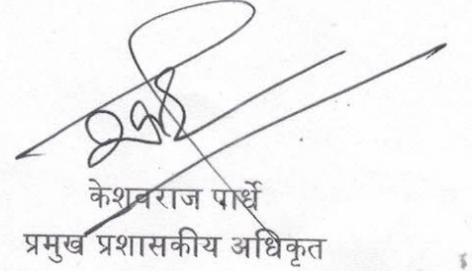 केशवराज पार्धे
प्रमुख प्रशासकीय अधिकृत